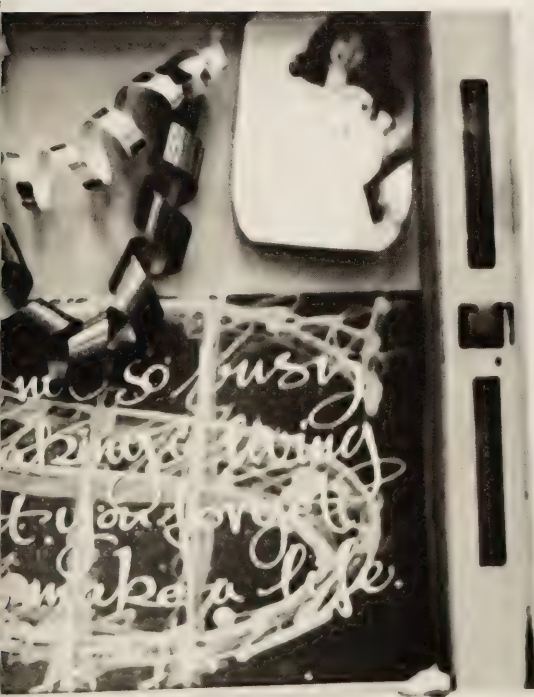 so busy
aking a living
t you forget
make a life.